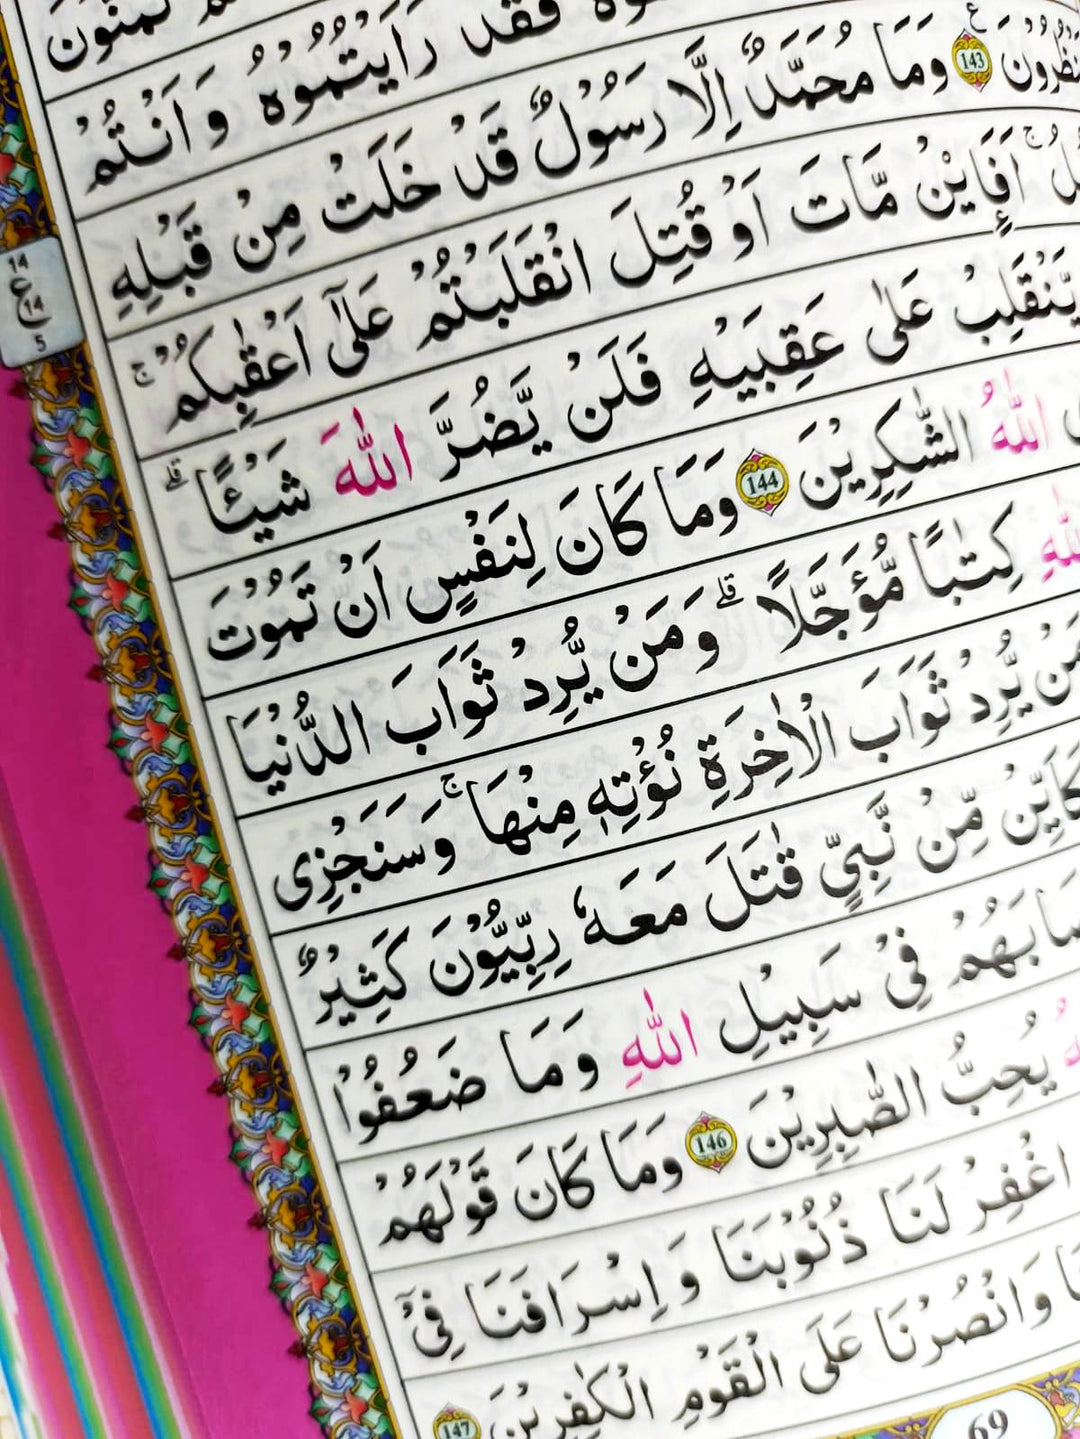 تَمَنَّوْنَ
فَقَدْ رَاَيْتُمُوْهُ وَ اَنْتُمْ
تَنْظُرُوْنَ ۝143 ع وَمَا مُحَمَّدٌ اِلَّا رَسُوْلٌ قَدْ خَلَتْ مِنْ قَبْلِهِ
اَفَا۟ئِنْ مَّاتَ اَوْ قُتِلَ انْقَلَبْتُمْ عَلٰٓى اَعْقَابِكُمْ ۚ
يَّنْقَلِبْ عَلٰى عَقِبَيْهِ فَلَنْ يَّضُرَّ اللّٰهَ شَيْـًٔا ؕ
اللّٰهُ الشّٰكِرِيْنَ ۝144 وَمَا كَانَ لِنَفْسٍ اَنْ تَمُوْتَ
كِتٰبًا مُّؤَجَّلًا ۗ وَمَنْ يُّرِدْ ثَوَابَ الدُّنْيَا
يُّرِدْ ثَوَابَ الْاٰخِرَةِ نُؤْتِهٖ مِنْهَا ۚ وَسَنَجْزِى
مِّنْ نَّبِيٍّ قٰتَلَ مَعَهٗ رِبِّيُّوْنَ كَثِيْرٌ
فِيْ سَبِيْلِ اللّٰهِ وَمَا ضَعُفُوْا
يُحِبُّ الصّٰبِرِيْنَ ۝146 وَمَا كَانَ قَوْلَهُمْ
اغْفِرْ لَنَا ذُنُوْبَنَا وَ اِسْرَافَنَا فِيْٓ
وَانْصُرْنَا عَلَى الْقَوْمِ الْكٰفِرِيْنَ ۝147
14
ع 14
5
69